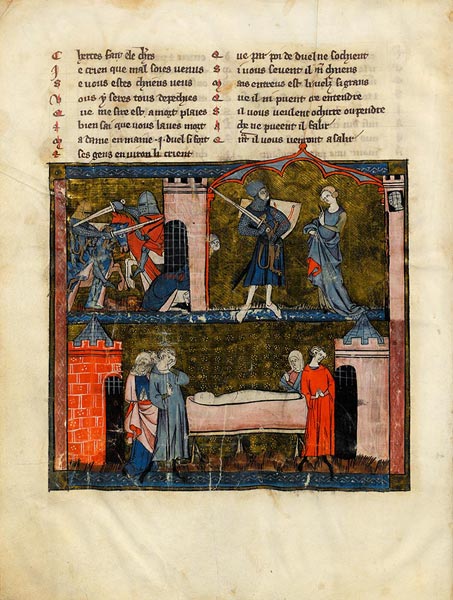 Chertes fait ele chrs
Je crien que mal soies venus
Se vous estes chiens veus
Vous y seres tous depechies
Que me sire est a mort plaies
bien sai que vous laues mort
Ma dame en maine .i. duel si fort
ses gens environ li crient
Que par poi de duel ne socient
Si vous sevent il
est li duelz si grans
Que il ni pueent or entendre
Sil vous veulent ochirre ou pendre
A che ne pueent il falir
il vous venront asalir